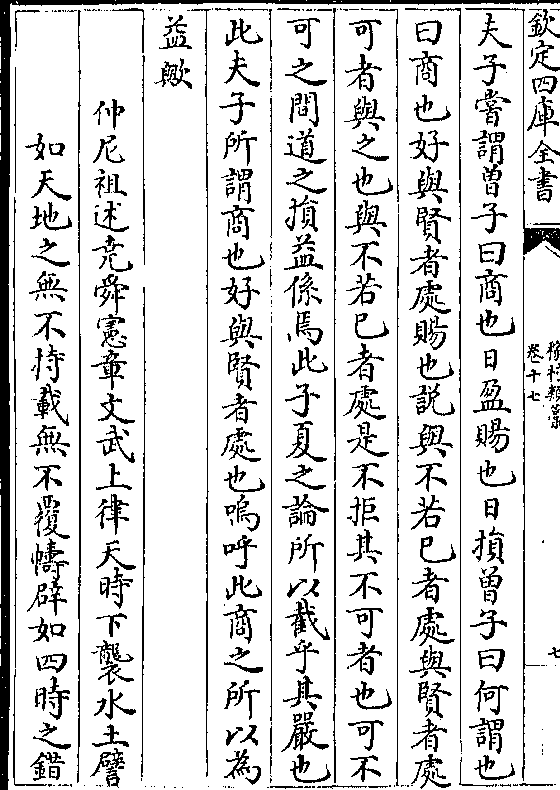 欽定四庫全書
卷十七
七
夫子嘗謂曾子曰商也日盈賜也日損曾子曰何謂也
曰商也好與賢者處賜也説與不若已者處與賢者處
可者與之也與不若已者處是不拒其不可者也可不
可之間道之損益係焉此子夏之論所以截乎其嚴也
此夫子所謂商也好與賢者處也嗚呼此商之所以為
益歟
仲尼祖述堯舜憲章文武上律天時下襲水土譬
如天地之無不持載無不覆幬辟如四時之錯